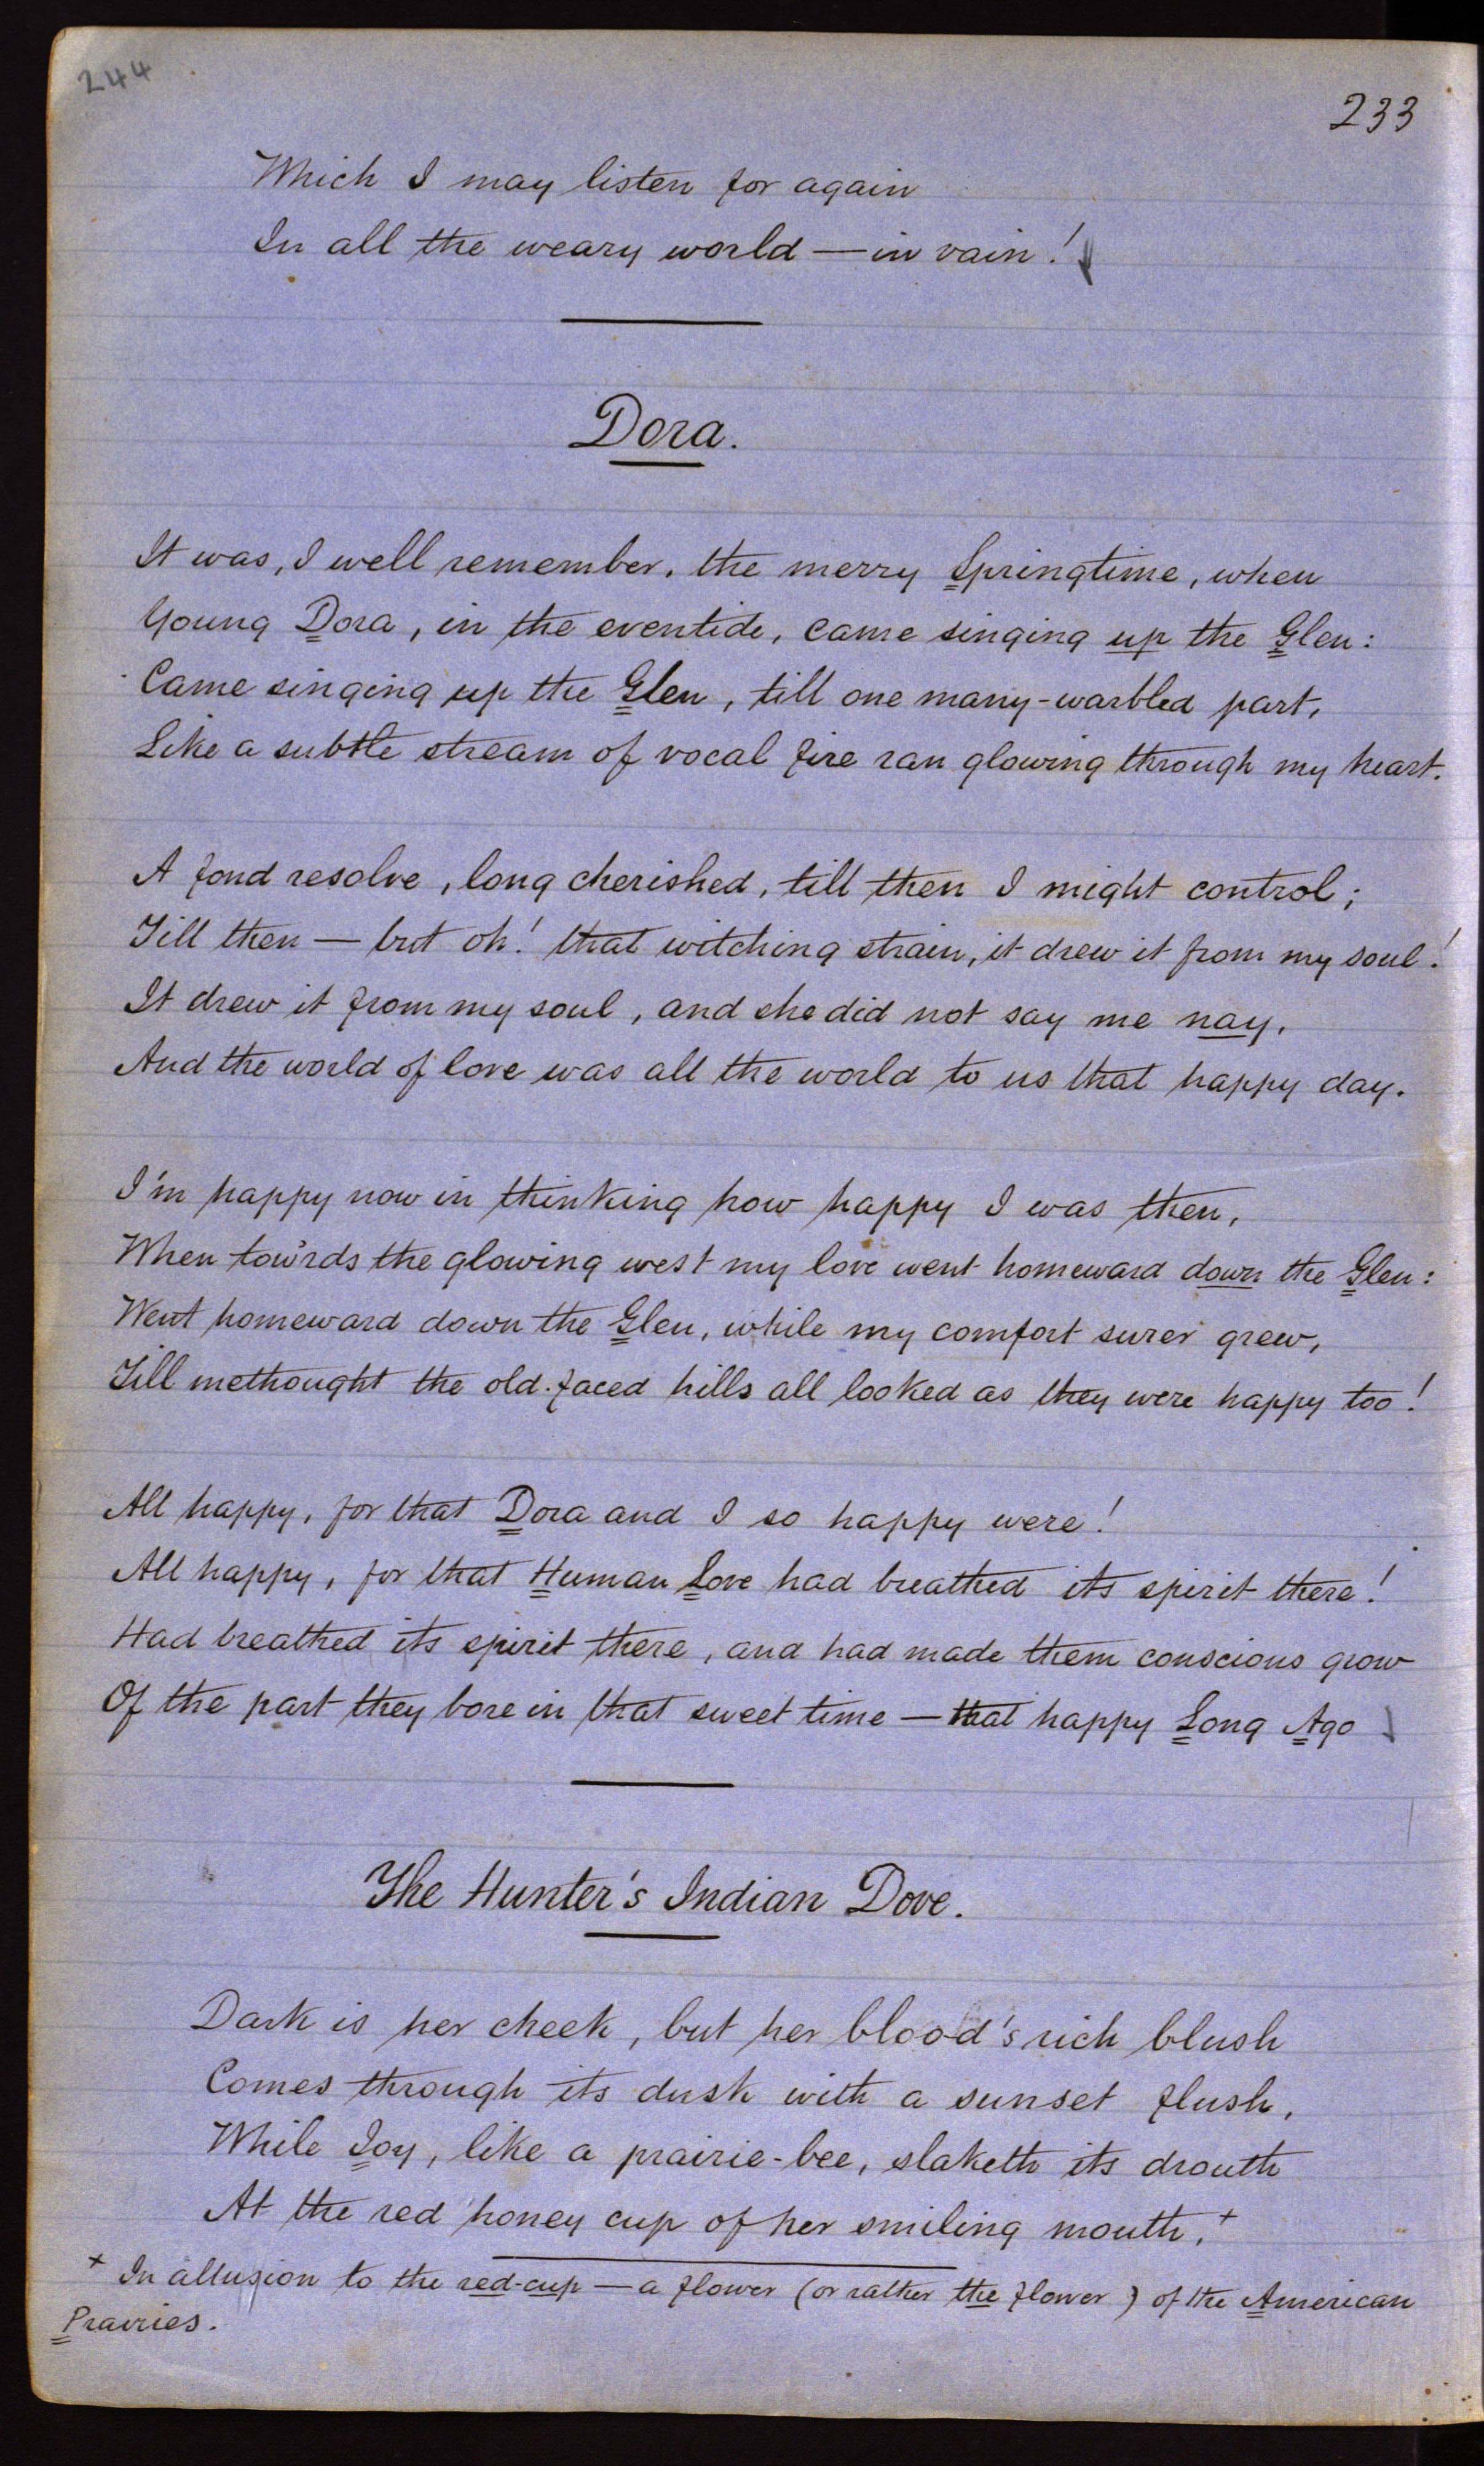 244
233
Which I may listen for again
In all the weary world — in vain!
Dora.
It was, I well remember, the merry Springtime, when
Young Dora, in the eventide, came singing up the Glen:
Came singing up the Glen, till one many-warbled part,
Like a subtle stream of vocal fire ran glowing through my heart.
A fond resolve, long cherished, till then I might control;
Till then — but oh! that witching strain, it drew it from my soul!
It drew it from my soul, and she did not say me nay,
And the world of love was all the world to us that happy day.
I'm happy now in thinking how happy I was then,
When tow'rds the glowing west my love went homeward down the Glen:
Went homeward down the Glen, while my comfort surer grew,
Till methought the old-faced hills all looked as they were happy too!
All happy, for that Dora and I so happy were!
All happy, for that Human Love had breathed its spirit there!
Had breathed its spirit there, and had made them conscious grow
Of the part they bore in that sweet time — that happy Long Ago
The Hunter's Indian Dove.
Dark is her cheek, but her blood's rich blush
Comes through its dusk with a sunset flush,
While Joy, like a prairie-bee, slaketh its drouth
At the red honey cup of her smiling mouth.+
+ In allusion to the red-cup — a flower (or rather the flower) of the American
Prairies.